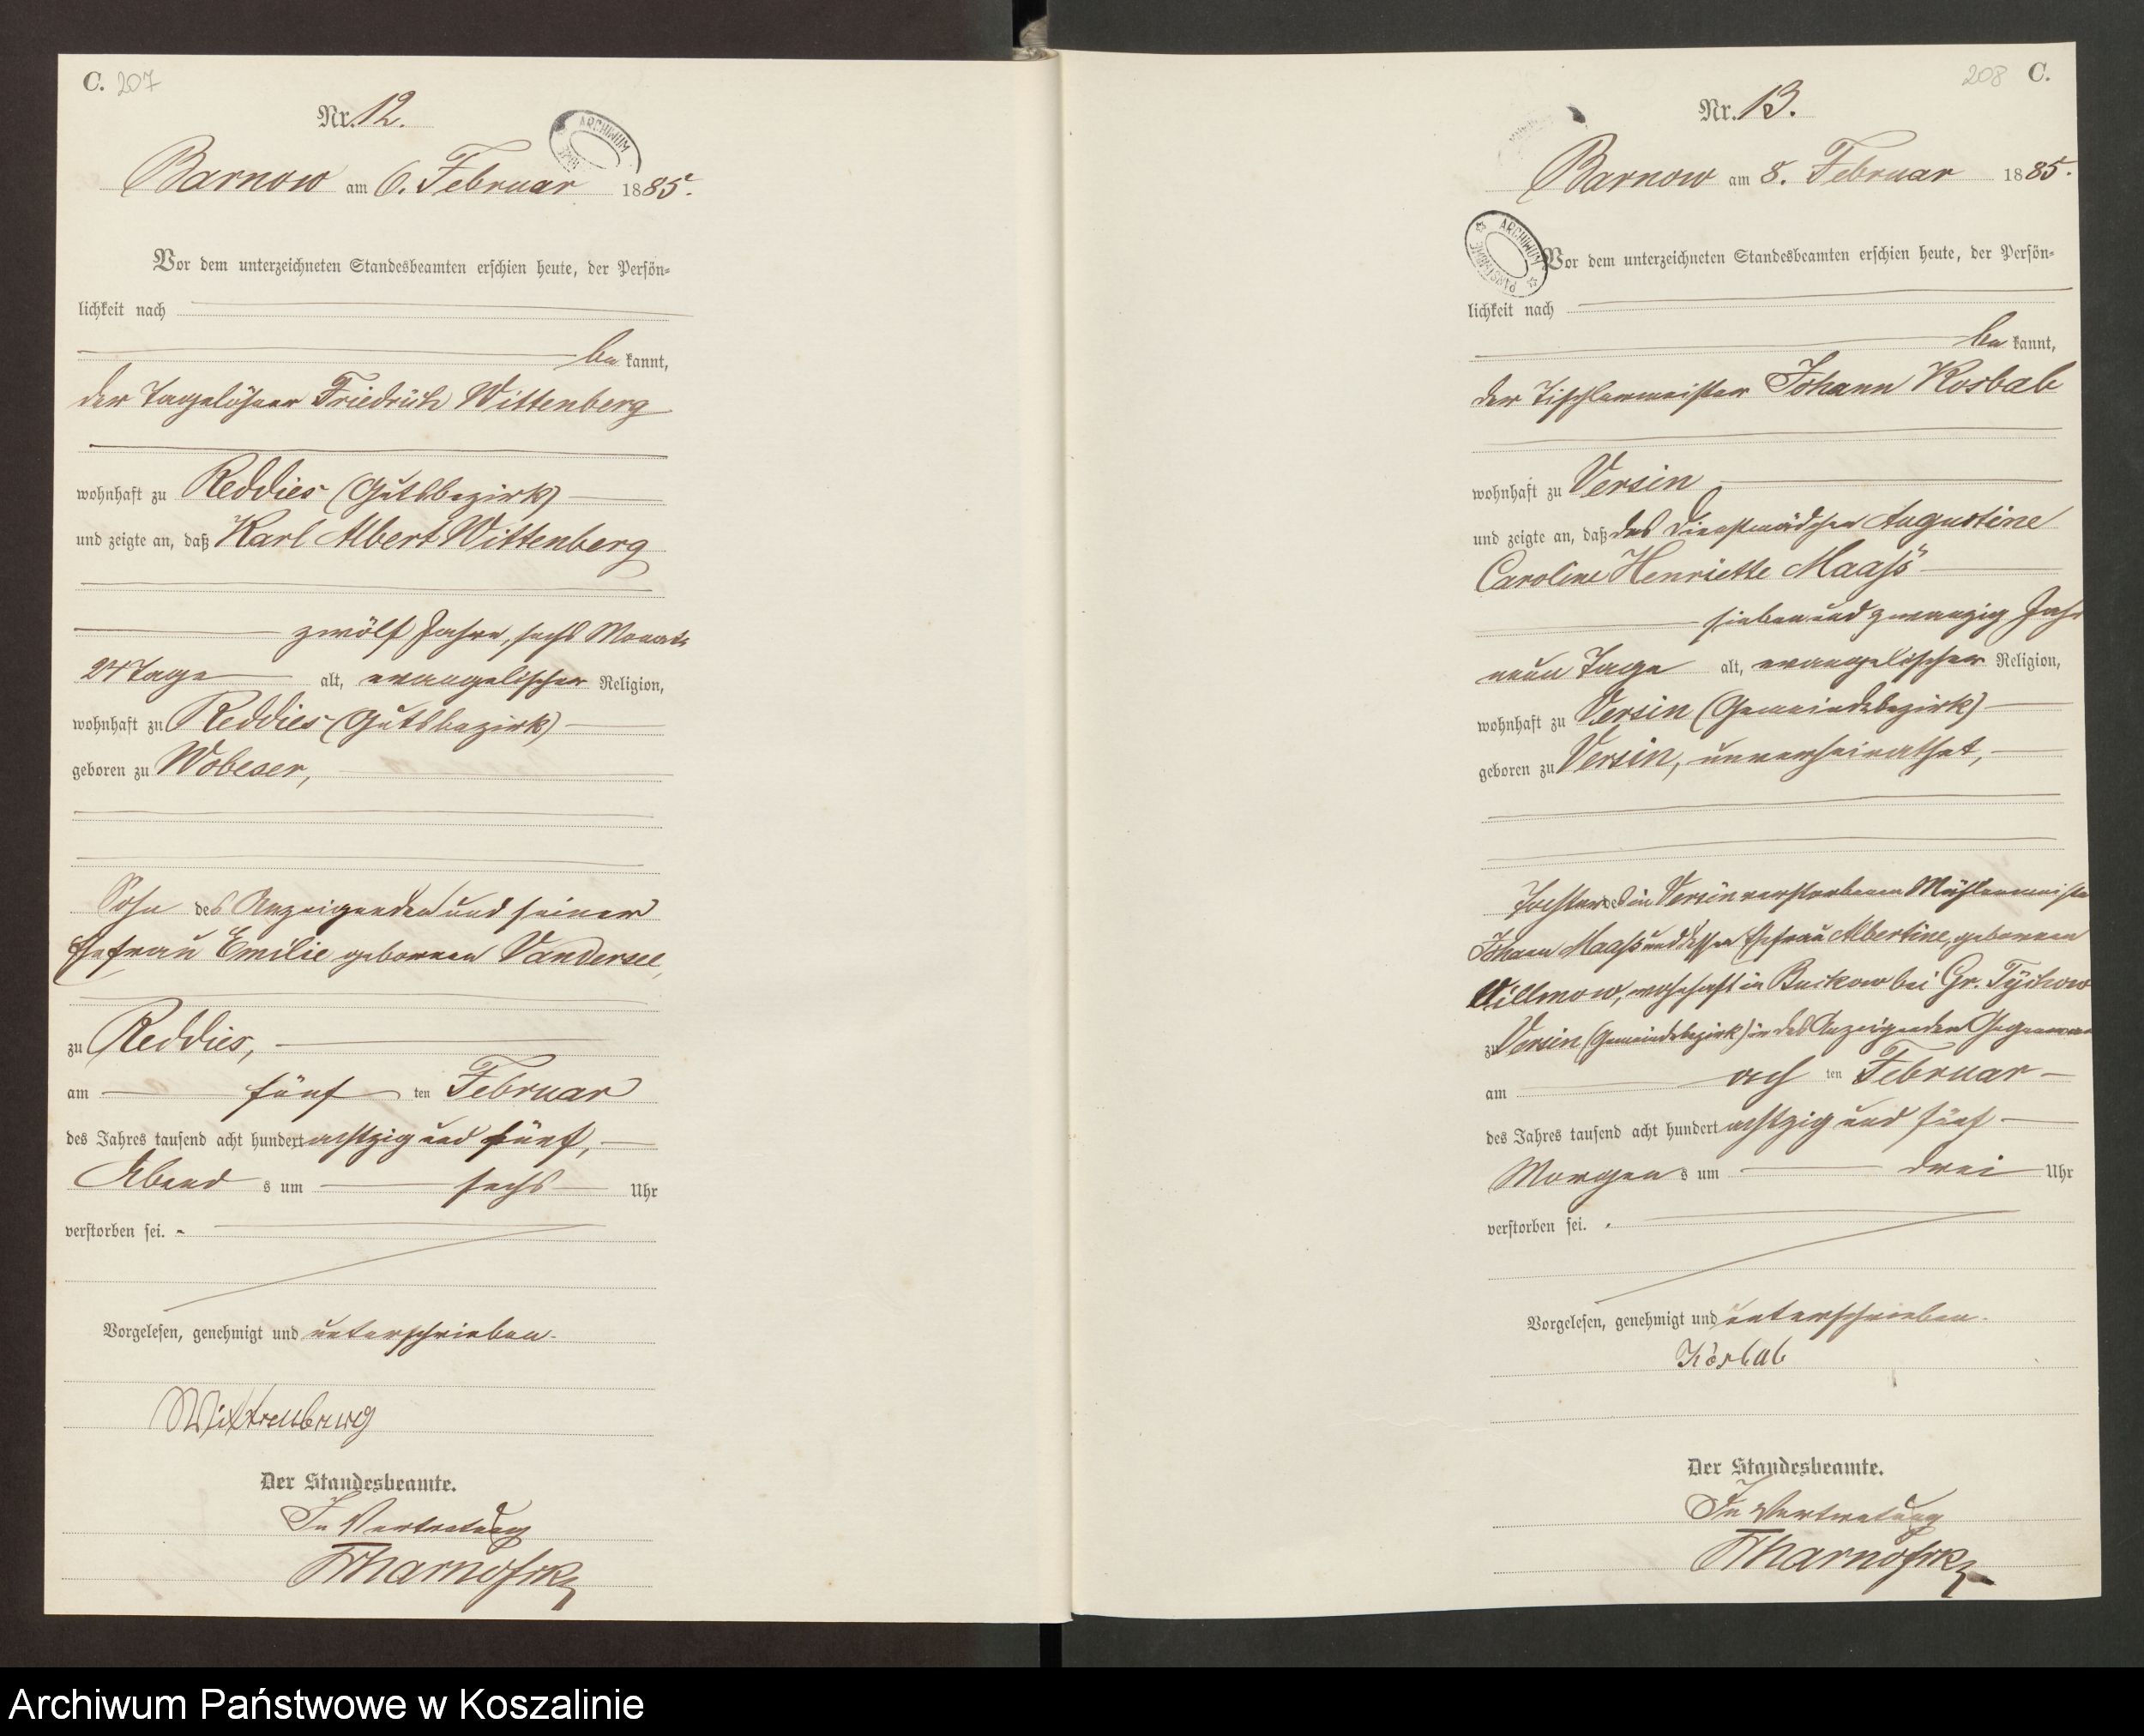 C. 207
Nr. 12.
ARCHIWUM
Barnow am 6. Februar 1885.
Vor dem unterzeichneten Standesbeamten erschien heute, der Persön-
lichkeit nach
be kannt,
der Tagelöhner Friedrich Wittenberg
wohnhaft zu Reddies (Gutsbezirk)
und zeigte an, daß Karl Albert Wittenberg
zwölf Jahre, sechs Monate
24 Tage alt, evangelischer Religion,
wohnhaft zu Reddies (Gutsbezirk)
geboren zu Wobeser,
Sohn des Anzeigenden und seiner
Ehefrau Emilie geborenen Vandersee,
zu Reddies,
am fünf ten Februar
des Jahres tausend acht hundert achtzig und fünf,
Abend s um sechs Uhr
verstorben sei.
Vorgelesen, genehmigt und unterschrieben.
Wittenberg
Der Standesbeamte.
In Vertretung
208 C.
Nr. 13.
Barnow am 8. Februar 1885.
ARCHIWUM PAŃSTWOWE
Vor dem unterzeichneten Standesbeamten erschien heute, der Persön-
lichkeit nach
be kannt,
der Tischlermeister Johann Kosbab
wohnhaft zu Versin
und zeigte an, daß das Dienstmädchen Augustine
Caroline Henriette Maaß
sieben und zwanzig Jahr
neun Tage alt, evangelischer Religion,
wohnhaft zu Versin (Gemeindebezirk)
geboren zu Versin, unverheirathet,
Tochter des in Versin verstorbenen Mühlenmeister
Johann Maaß und dessen Ehefrau Albertine, geborenen
Villnow, wohnhaft in Buckow bei Gr. Tychow
zu Versin (Gemeindebezirk) in des Anzeigenden Gegenwart
am ach ten Februar
des Jahres tausend acht hundert achtzig und fünf
Morgen s um drei Uhr
verstorben sei.
Vorgelesen, genehmigt und unterschrieben.
Kosbab
Der Standesbeamte.
In Vertretung
Archiwum Państwowe w Koszalinie